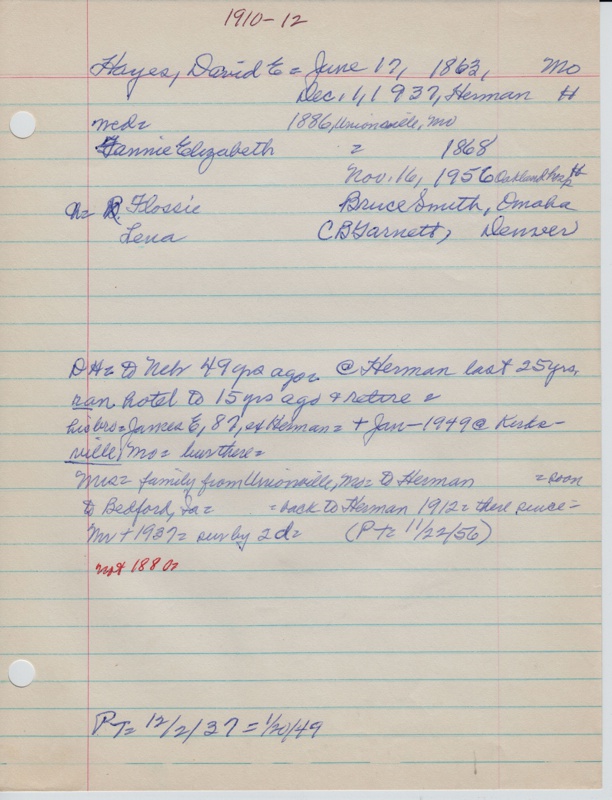 1910-12
Hayes, David E = June 17, 1863, Mo
Dec. 1, 1937, Herman H
md= 1886, Unionville, Mo
Fannie Elizabeth = 1868
Nov. 16, 1956 Oakland hosp H
R. Flossie Bruce Smith, Omaha
Lena C B Garnett, Denver
DH= to Nebr 49 yrs ago= @ Herman last 25 yrs,
ran hotel to 15 yrs ago & retire =
his bro= James E, 82, ex Herman = + Jan - 1949 @ Kirks-
ville, Mo = bur there =
Mrs = family from Unionville, Mo = to Herman = soon
to Bedford, Ia = = back to Herman 1912 = there since =
Mr + 1937 = sur by 2 d = (PT= 11/22/56)
not 1880=
PT= 12/2/37 = 1/20/49